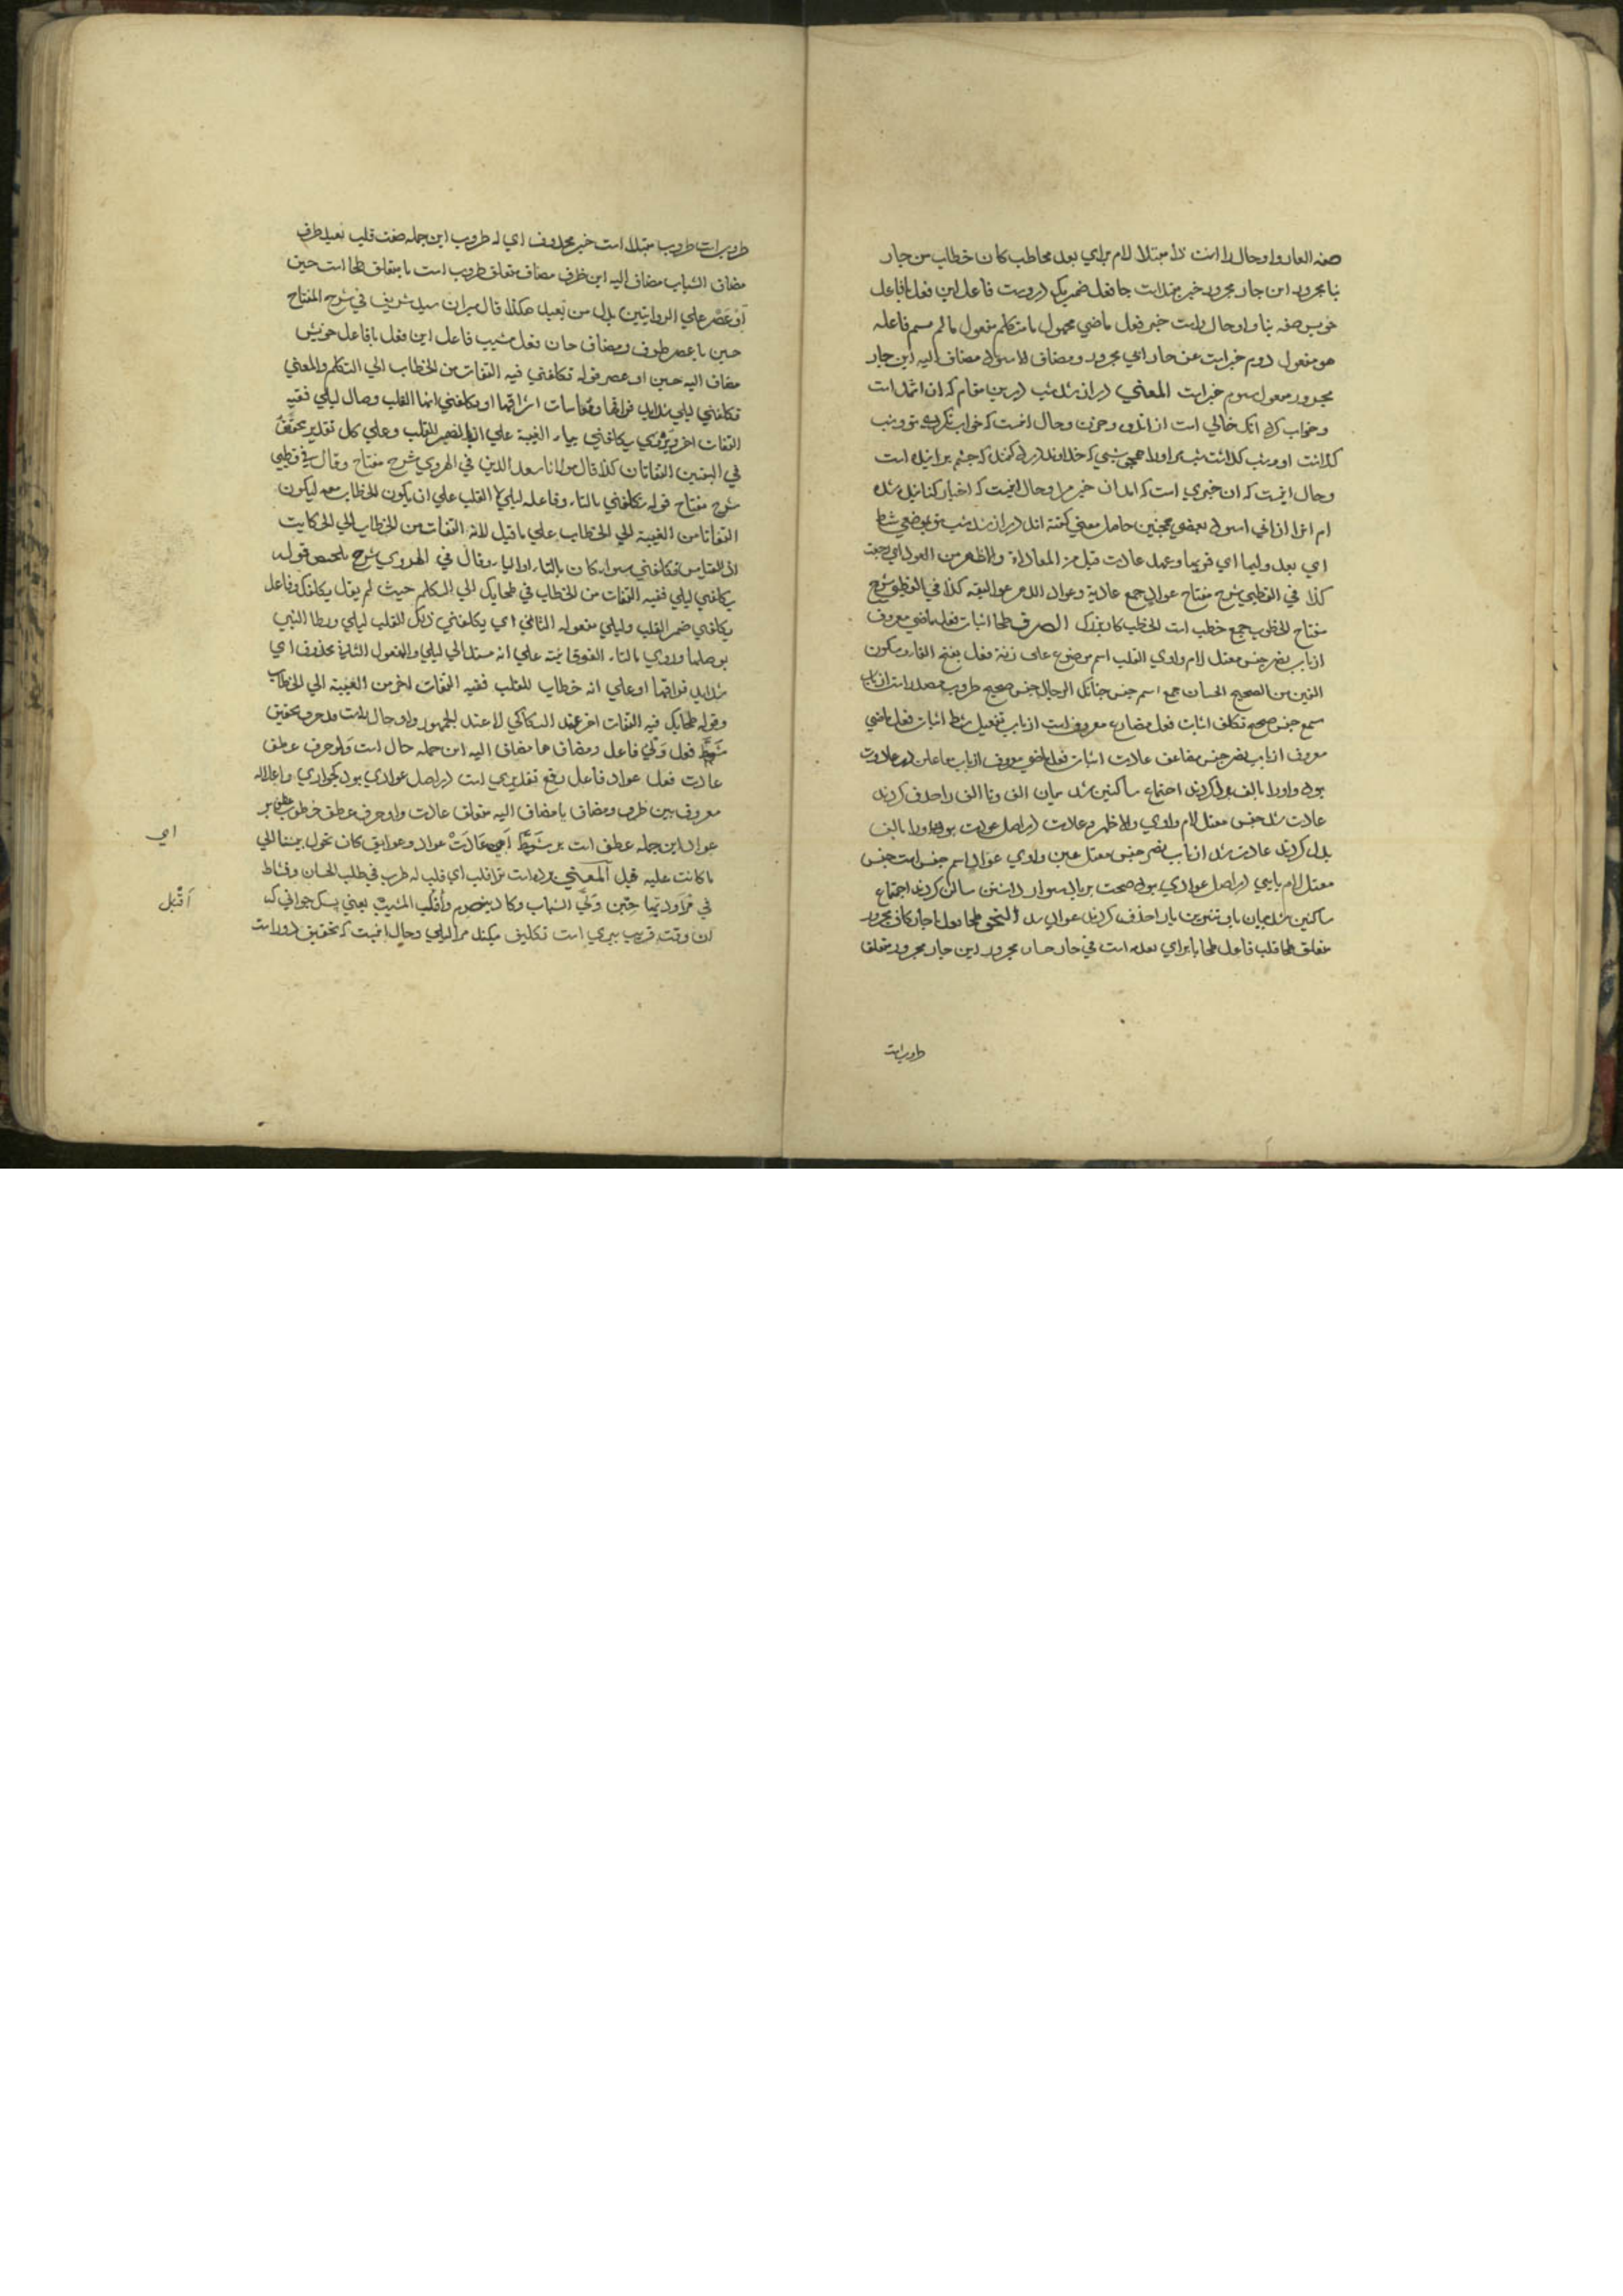 صفه العار واو حال را انت ذا مبتدا لام براي بعد مخاطب كان خطاب من جار
نبا مجرور اين جار مجرور خبر مبتدا است جا فعل ضمير يكي دروست فاعل اين فعل با فاعل
خويش صفه نبا واو حال راست خبر فعل ماضي مجهول با متكلم مفعول مالم يسم فاعله
هو مفعول دوم خبر است عن جار ابي مجرور ومضاف الاسود مضاف اليه اين جار
مجرور مفعول سوم خبر است المعني دراز شد شب درين مقام كه ان اثمد است
وخواب كرد انك خالي است از اندوه وحزن وحال انست كه خواب نكردي تو وشب
كذاشت او وشب كذاشت شب مر اورا همچو شبي كه خداوند درد كند كه چشم
وحال انيست كه ان خبري است كه امد ان خبر مرا وحال انيست كه اخبار كنانيده شده
ام انرا از ابي اسود بعضي محجنين حاصل معني كفته اند دراز شد شب تو بموضعي شط
اي بعد وليها اي قربها وعهد عادت قيل من المعاداة والاظهر من العود اي رجعت
كذا في القطبي شرح مفتاح عوادي جمع عادية وعواد الدهر عوائقه كذا في القطبي شرح
مفتاح الخطوب جمع خطب است الخطب كار بزرك الصرف طحا اثبات فعل ماضي معروف
از باب نصر جنس معتل لام واوي القلب اسم موضوع على زنة فعل بفتح الفاء وسكون
العين من الصحيح الحسان جمع اسم جنس چنانكه الرجال جنس صحيح طروب مصدر است از باب
سمع جنس صحيح تكلف اثبات فعل مضارع معروفست از باب تفعيل شط اثبات فعل ماضي
معروف از باب نصر جنس مضاعف عادت اثبات فعل ماضي معروف از باب مفاعلت در اصل عادوت
بود واورا بالف بدل كردند اجتماع ساكنين شد ميان الف وتا الف را حذف كردند
عادت شد جنس معتل لام واوي والاظهر عادت در اصل عودت بود واورا بالف
بدل كردند عادت شد از باب نصر جنس معتل عين واوي عواد اسم جنس است جنس
معتل لام يايي در اصل عوادي بود ضمت بريا دشوار داشتن ساكن كردند اجتماع
ساكنين شد ميان يا وتنوين يارا حذف كردند عواد شد النحو طحا فعل با جار كاف مجرور
متعلق طحا قلب فاعل طحا با براي تعديه است في جار حسان مجرور اين جار مجرور متعلق
طروب است
طروب است طروب مبتدا است خبر محذوف اي له طروب اين جمله صفت قلب بعيد ظرف
مضاف الشباب مضاف اليه اين ظرف مضاف متعلق طروب است يا متعلق طحا است حين
او عصر علي الروايتين بدل من بعيد هكذا قال ميران سيد شريف في شرح المفتاح
حين يا عصر ظرف ومضاف حان فعل مشيب فاعل اين فعل با فاعل خويش
مضاف اليه حين او عصر قوله تكلفني فيه التفات من الخطاب الي التكلم والمعني
تكلفني ليلي شدايد فراقها ومقاسات اشواقها او يكلفني انها القلب وصال ليلي ففيه
التفات اخر ويروي يكلفني بياء الغيبة علي ان الضمير للقلب وعلي كل تقدير تحقق
في البيتين التفاتان كذا قال مولانا سعد الدين في الهروي شرح مفتاح وقال في قطبي
شرح مفتاح قوله تكلفني بالتاء وفاعله ليلي لا القلب علي ان يكون للخطاب معه ليكون
التفاتا من الغيبة الي الخطاب علي ما قيل لانه التفات من الخطاب الي الحكايت
اذ القياس تكلفني سواء كان بالتاء او الياء وقال في الهروي شرح تلخيص قوله
يكلفني ليلي ففيه التفات من الخطاب في طحابك الي التكلم حيث لم يقل يكلفك وفاعل
يكلفني ضمير القلب وليلي مفعوله الثاني اي يكلفني ذلك القلب ليلي ويطالبني
بوصلها وروي بالتاء الفوقانية علي انه مسند الي ليلي والمفعول الثاني محذوف اي
شدايد فراقها او علي انه خطاب للقلب ففيه التفات اخر من الغيبة الي الخطاب
وقوله طحابك فيه التفات اخر عند السكاكي لا عند الجمهور واو حال راست قد حرف تحقيق
شط فعل ولي فاعل ومضاف ها مضاف اليه اين جمله حال است ولو حرف عطف
عادت فعل عواد فاعل رفع تقديري است در اصل عوادي بود كجواري واعلاله
معروف بين ظرف ومضاف يا مضاف اليه متعلق عادت واو حرف عطف خطوب عطف بر
عواد اين جمله عطف است بر شط اي عادت عواد وعوايق كان تحول بيننا الي
اي
ما كانت عليه قبل المعني برده است ترا قلب اي قلب له طرب في طلب الحسان ونشاط
في مراودتها حين ولي الشباب وكاد ينصرم واقبل المشيب يعني بسكه جواني كه
اقبل
ان وقت قريب پيري است تكليف ميكند مرا ليلي وحال انيست كه تحقيق دور است